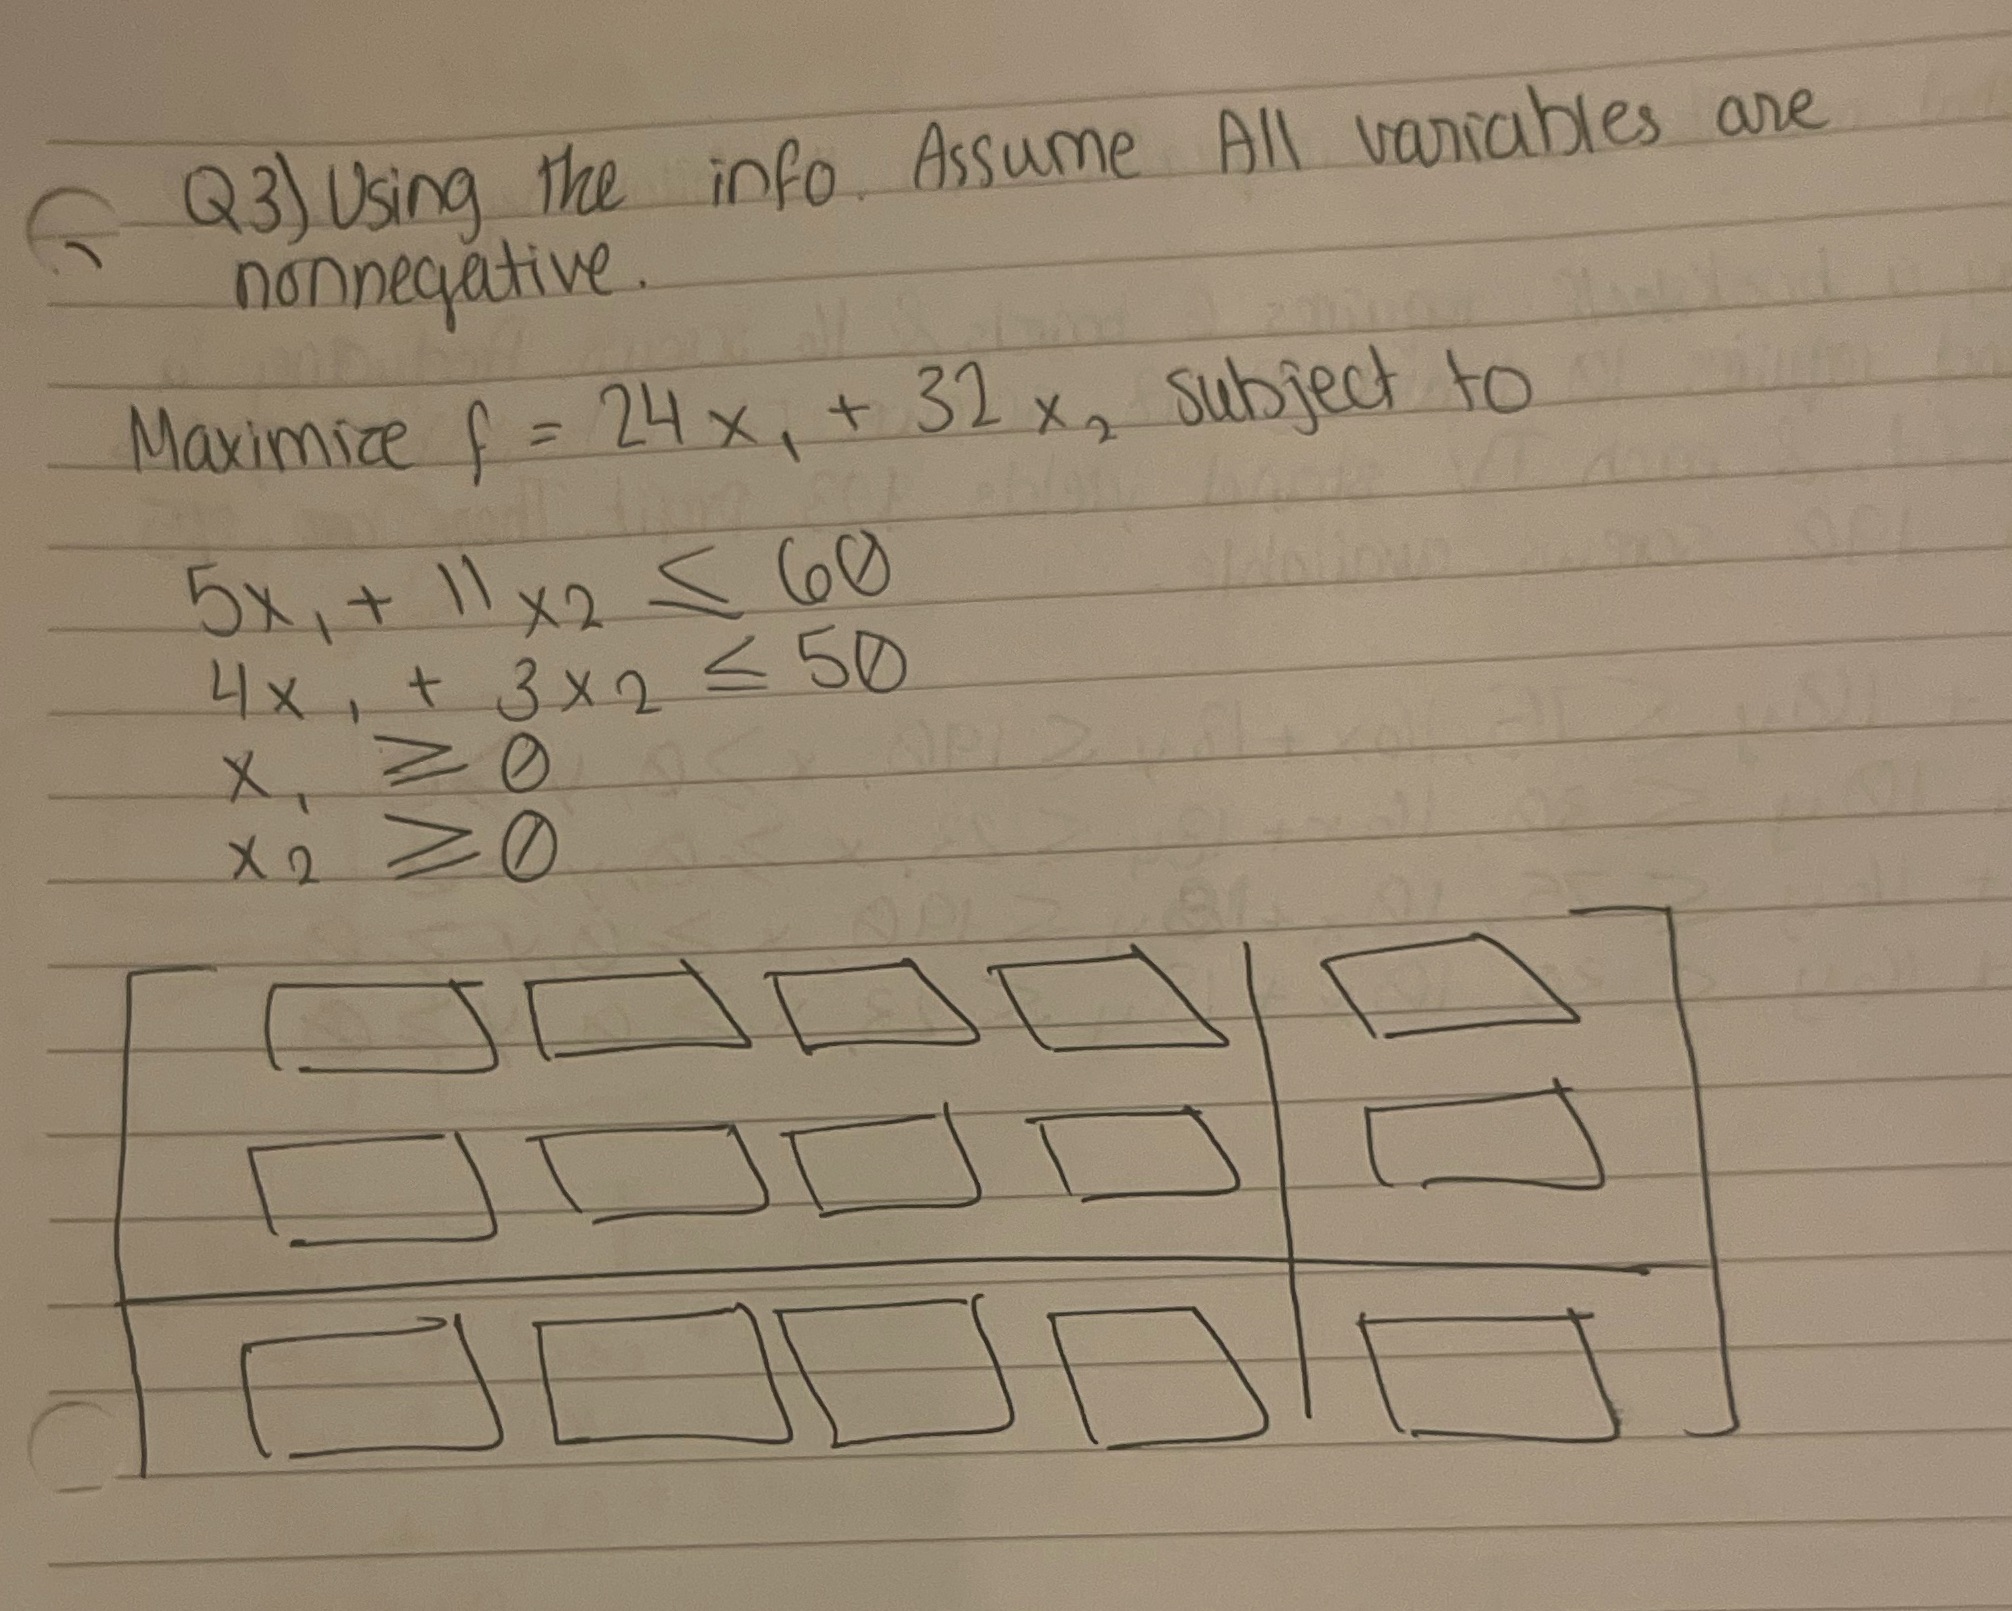 Q3) Using the info. Assume All variables are
nonnegative.
Maximize f = 24x₁ + 32x₂ subject to
5x₁ + 11x2 ≤ 60
4x₁ + 3x2 ≤ 50
x₁ ≥ 0
x2 ≥ 0